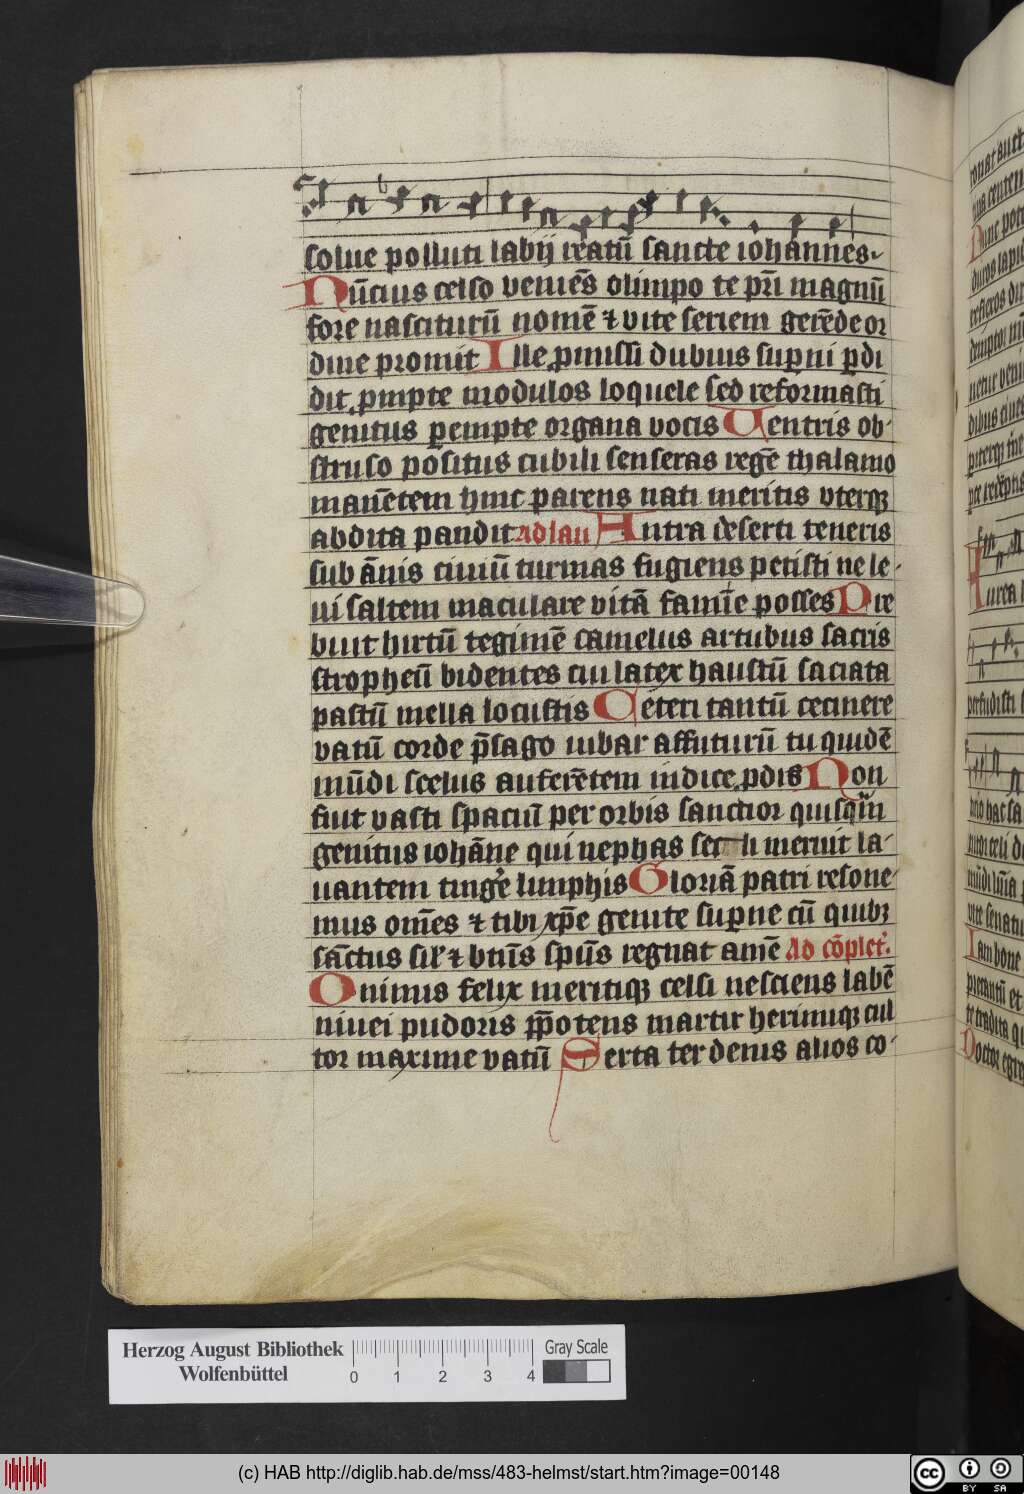 solue polluti labij reatū sancte iohannes
Nūcius celso veniēs olimpo te pr̄i magnū
fore nasciturū nomē ⁊ vite seriem gerēde or
dine promit Ille ꝓmissi dubius suꝑni ꝑdi
dit ꝓmpte modulos loquele sed reformasti
genitus ꝑempte organa vocis Uentris ob
struso positus cubili senseras regē thalamo
manētem hinc parens nati meritis vterqꝫ
abdita pandit ad lau Antra deserti teneris
sub ānis ciuiū turmas fugiens petisti ne le
ui saltem maculare vitā famīe posses Pre
buit hirtū tegimē camelus artubus sacris
stropheū bidentes cui latex haustū saciata
pastū mella locustis Ceteri tantū cecinere
vatū corde p̄sago iubar affuturū tu quidē
mūdi scelus auferētem indice ꝓdis Non
fuit vasti spaciū per orbis sanctior quisq̄m
genitus iohāne qui nephas secli meruit la
uantem tinge limphis Gloriā patri resone
mus om̄es ⁊ tibi xp̄e genite suꝑne cū quibꝫ
sāctus sil' ⁊ btūs sp̄us regnat amē Ad cōplet'.
O nimis felix meritiqꝫ celsi nesciens labē
niuei pudoris p̄potens martir herimiqꝫ cul
tor maxime vatū Serta ter denis alios co
Herzog August Bibliothek
Wolfenbüttel
0 1 2 3 4
Gray Scale
(c) HAB http://diglib.hab.de/mss/483-helmst/start.htm?image=00148
cc BY SA